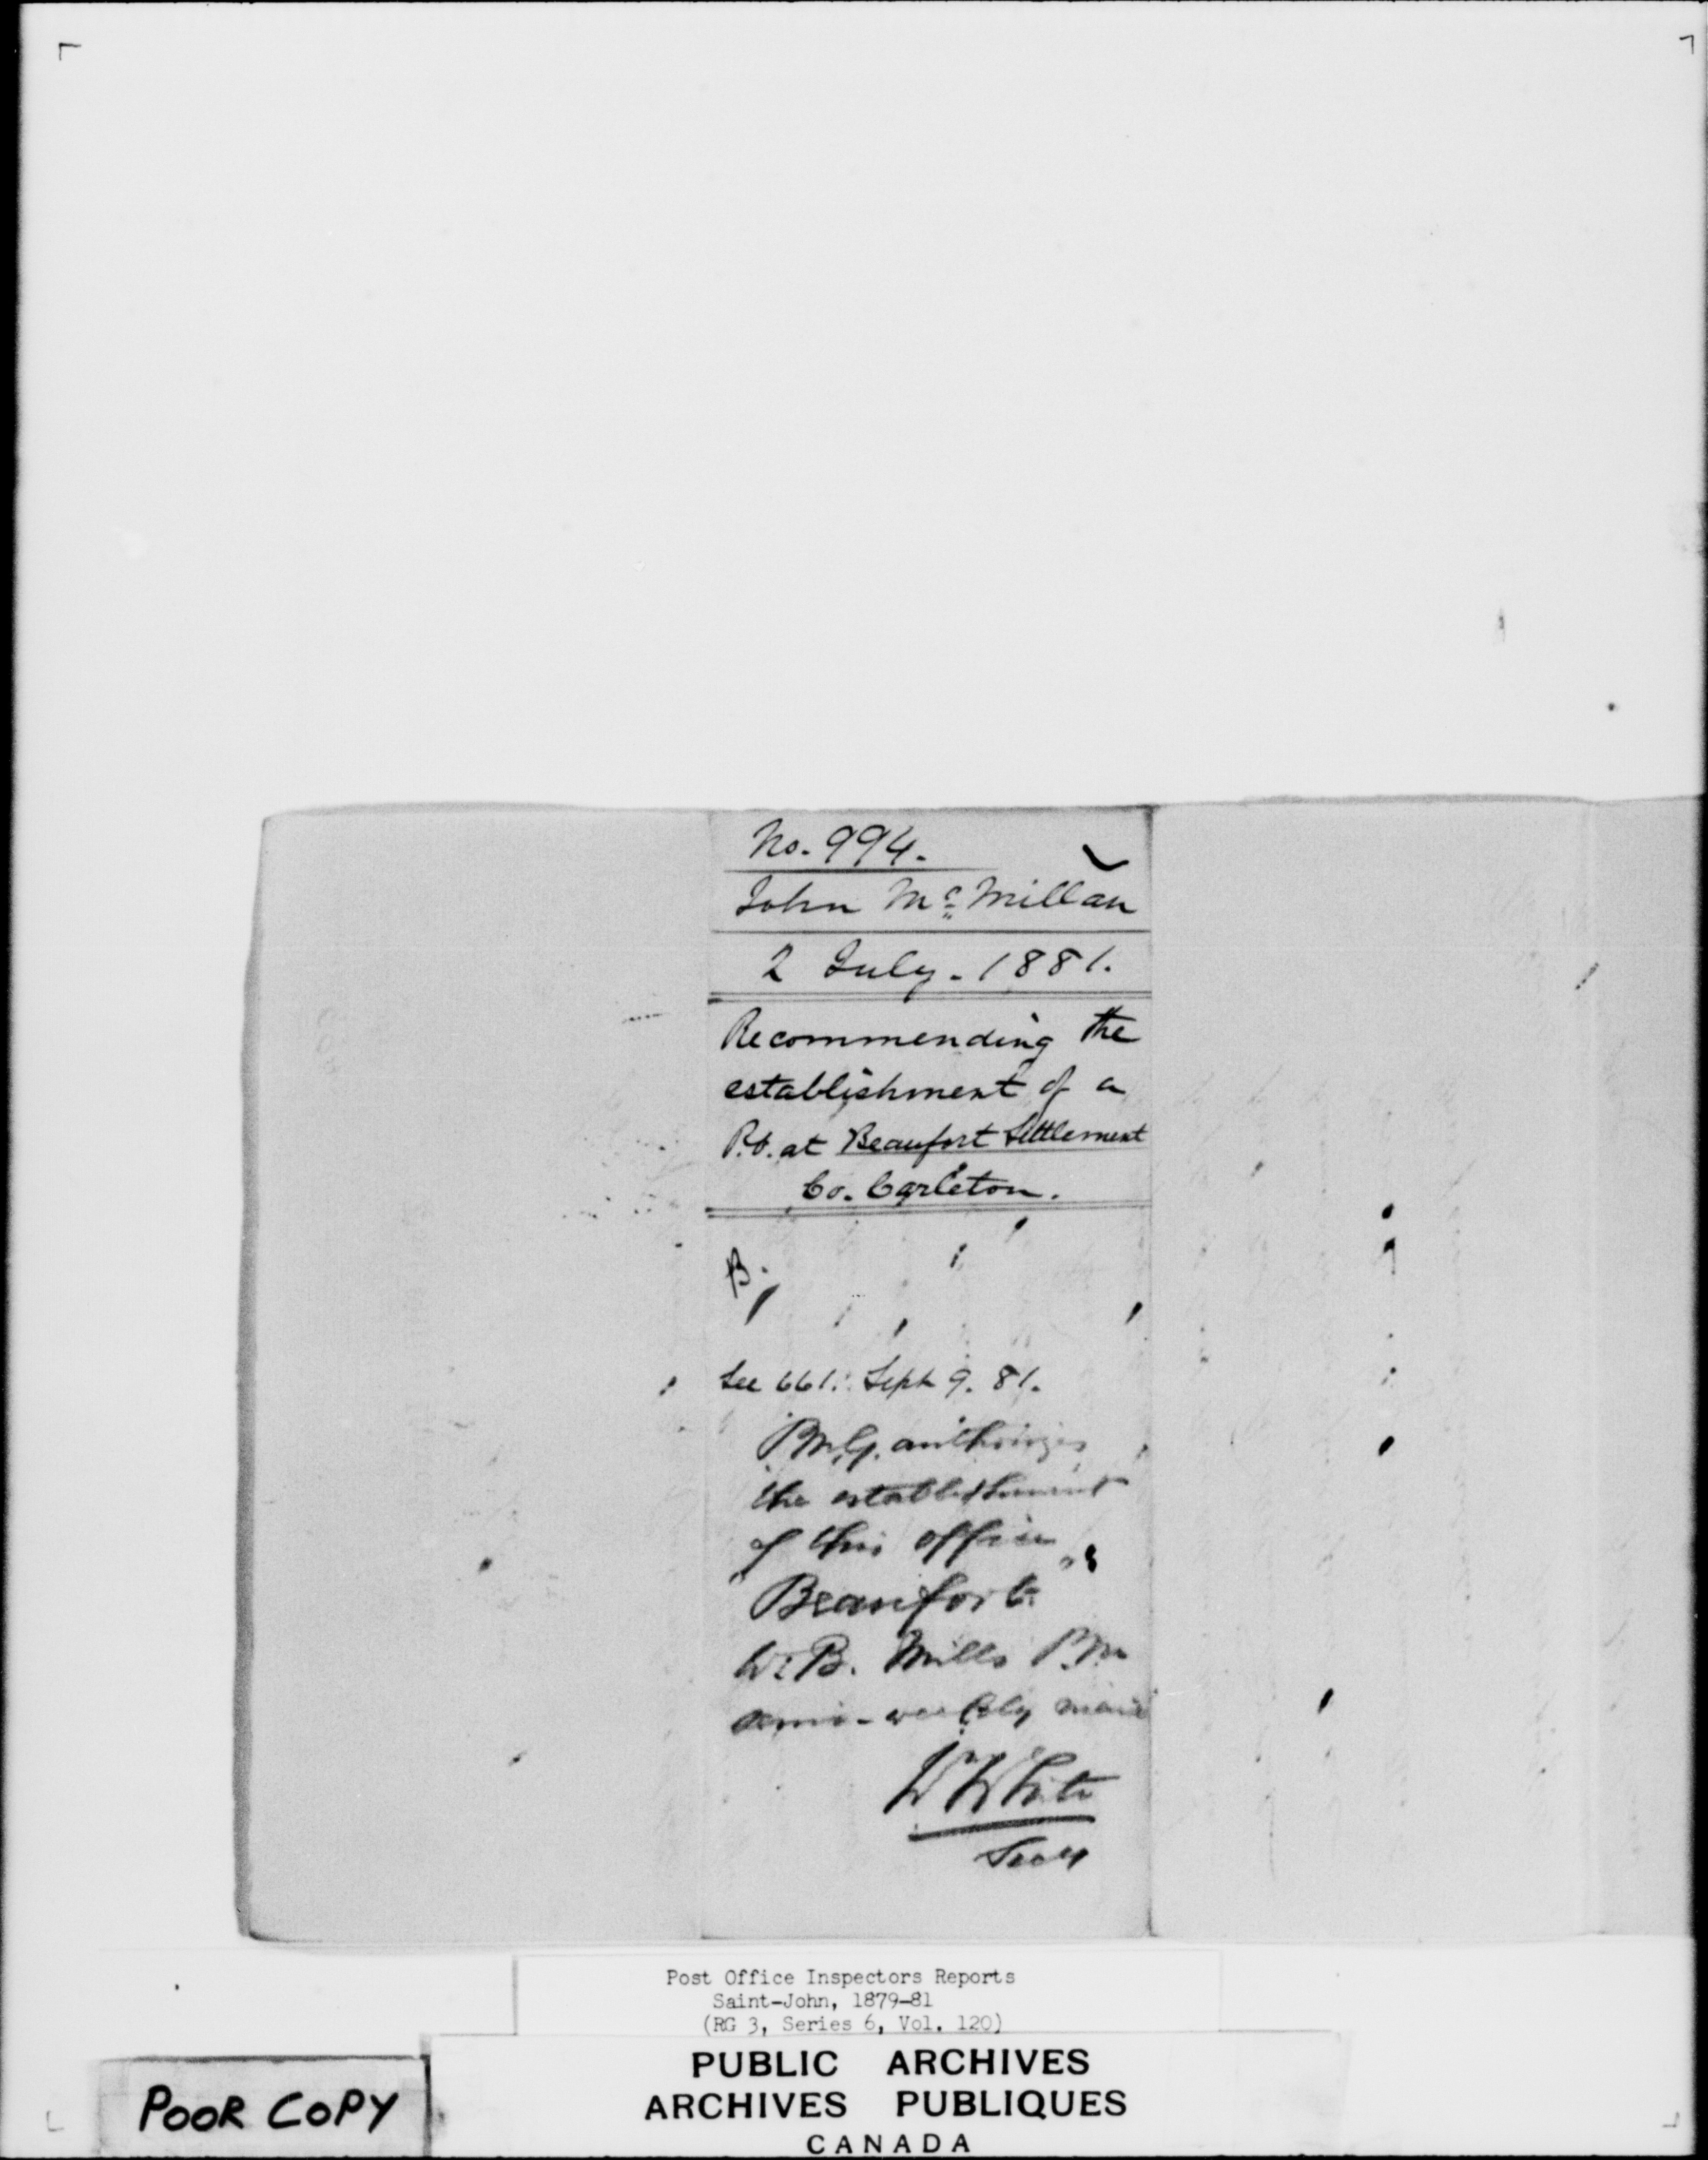 No. 994.
John McMillan
2 July. 1881.
Recommending the
establishment of a
P.O. at Beaufort Settlement
Co. Carleton.
B.
See 661. Sept 9. 81.
P.M.G. authorizes
the establishment
of this office
"Beaufort"
W. B. Mills P.M.
semi-weekly mail
W White
Secy
Post Office Inspectors Reports
Saint-John, 1879-81
(RG 3, Series 6, Vol. 120)
PUBLIC ARCHIVES
ARCHIVES PUBLIQUES
CANADA
POOR COPY